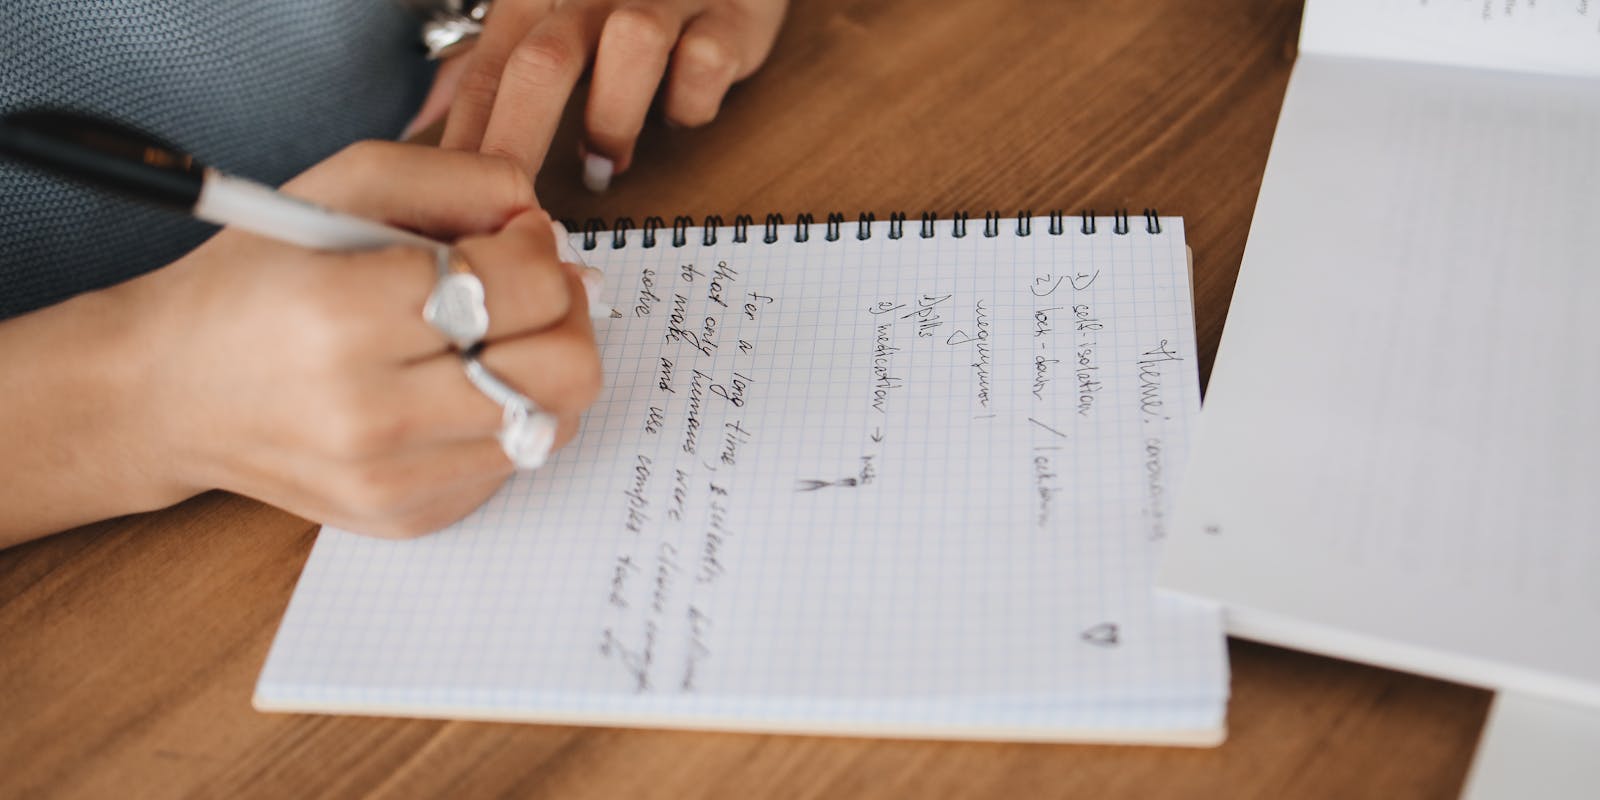 Theme: coronavirus
1) self-isolation
2) lock-down / lockdown
медицина!
1) pills
2) medication →
For a long time, scients believe
that only humans were clever enough
to make and use complex tools to
solve